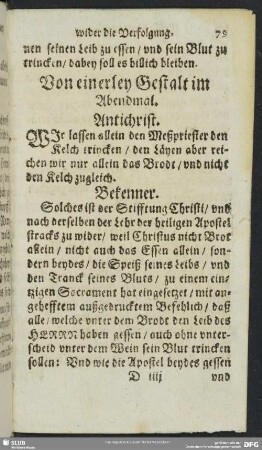 wider die Verfolgung.
79
nen seinen Leib zu essen / vnd sein Blut zu
trincken / dabey soll es billich bleiben.
Von einerley Gestalt im
Abendmal.
Antichrist.
WIr lassen allein den Meßpriester den
Kelch trincken / den Läyen aber rei-
chen wir nur allein das Brodt / vnd nicht
den Kelch zugleich.
Bekenner.
Solches ist der Stifftung Christi / vnd
nach derselben der Lehr der heiligen Apostel
stracks zu wider / weil Christus nicht Brot
allein / nicht auch das Essen allein / son-
dern beydes / die Speiß seines Leibs / vnd
den Tranck seines Bluts / zu einem ein-
tzigen Sacrament hat eingesetzet / mit an-
gehefftem außgedrucktem Befehlich / daß
alle / welche vnter dem Brodt den Leib des
HERRN haben gessen / auch ohne vnter-
scheid vnter dem Wein sein Blut trincken
sollen: Vnd wie die Apostel beydes gessen
D iiij
vnd
SLUB